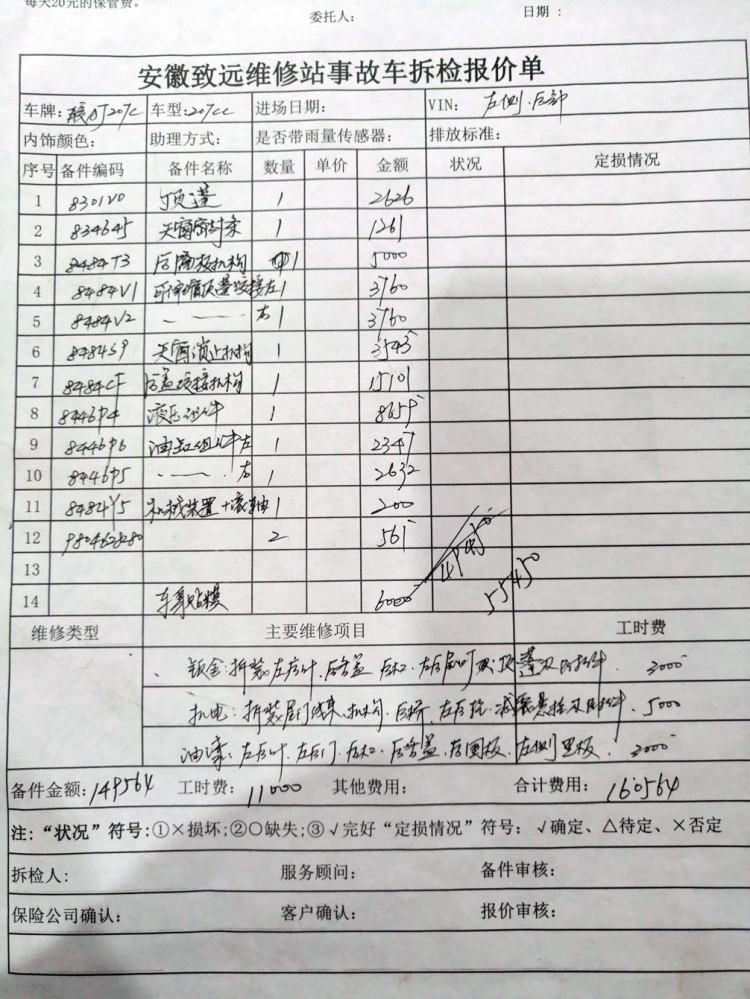 每天20元的保管费。
委托人： 日期：
安徽致远维修站事故车拆检报价单
车牌： 207C 车型：207CC 进场日期： VIN：左侧.后部
内饰颜色： 助理方式： 是否带雨量传感器： 排放标准：
序号 备件编码 备件名称 数量 单价 金额 状况 定损情况
1 8301V0 顶蓬 1 2626
2 834645 天窗密封条 1 1261
3 8484T3 后隔板机构 1 5000
4 8484V1 可伸缩顶蓬铰接左 1 3760
5 8484V2 右 1 3760
6 8484S9 天窗锁止机构 1 3545
7 8484CF 后盖铰接机构 1 15101
8 8446P4 液压组件 1 8659
9 8446P6 油缸组件左 1 2347
10 8446P5 右 1 2632
11 8484Y5 机械装置+滚轴 1 200
12 9804628280 2 561
13
14 车身贴膜 6000 55450
维修类型 主要维修项目 工时费
钣金:拆装左后叶.后备盖 后杠. 3000
机电:拆装 线束.机构.后桥. 5000
油漆:左后叶.左后门.后杠.后备盖.后围板.左侧里板. 3000
备件金额：149564 工时费：11000 其他费用： 合计费用：160564
注：“状况”符号：①×损坏;②○缺失;③√完好“定损情况”符号：√确定、△待定、×否定
拆检人： 服务顾问： 备件审核：
保险公司确认： 客户确认： 报价审核：